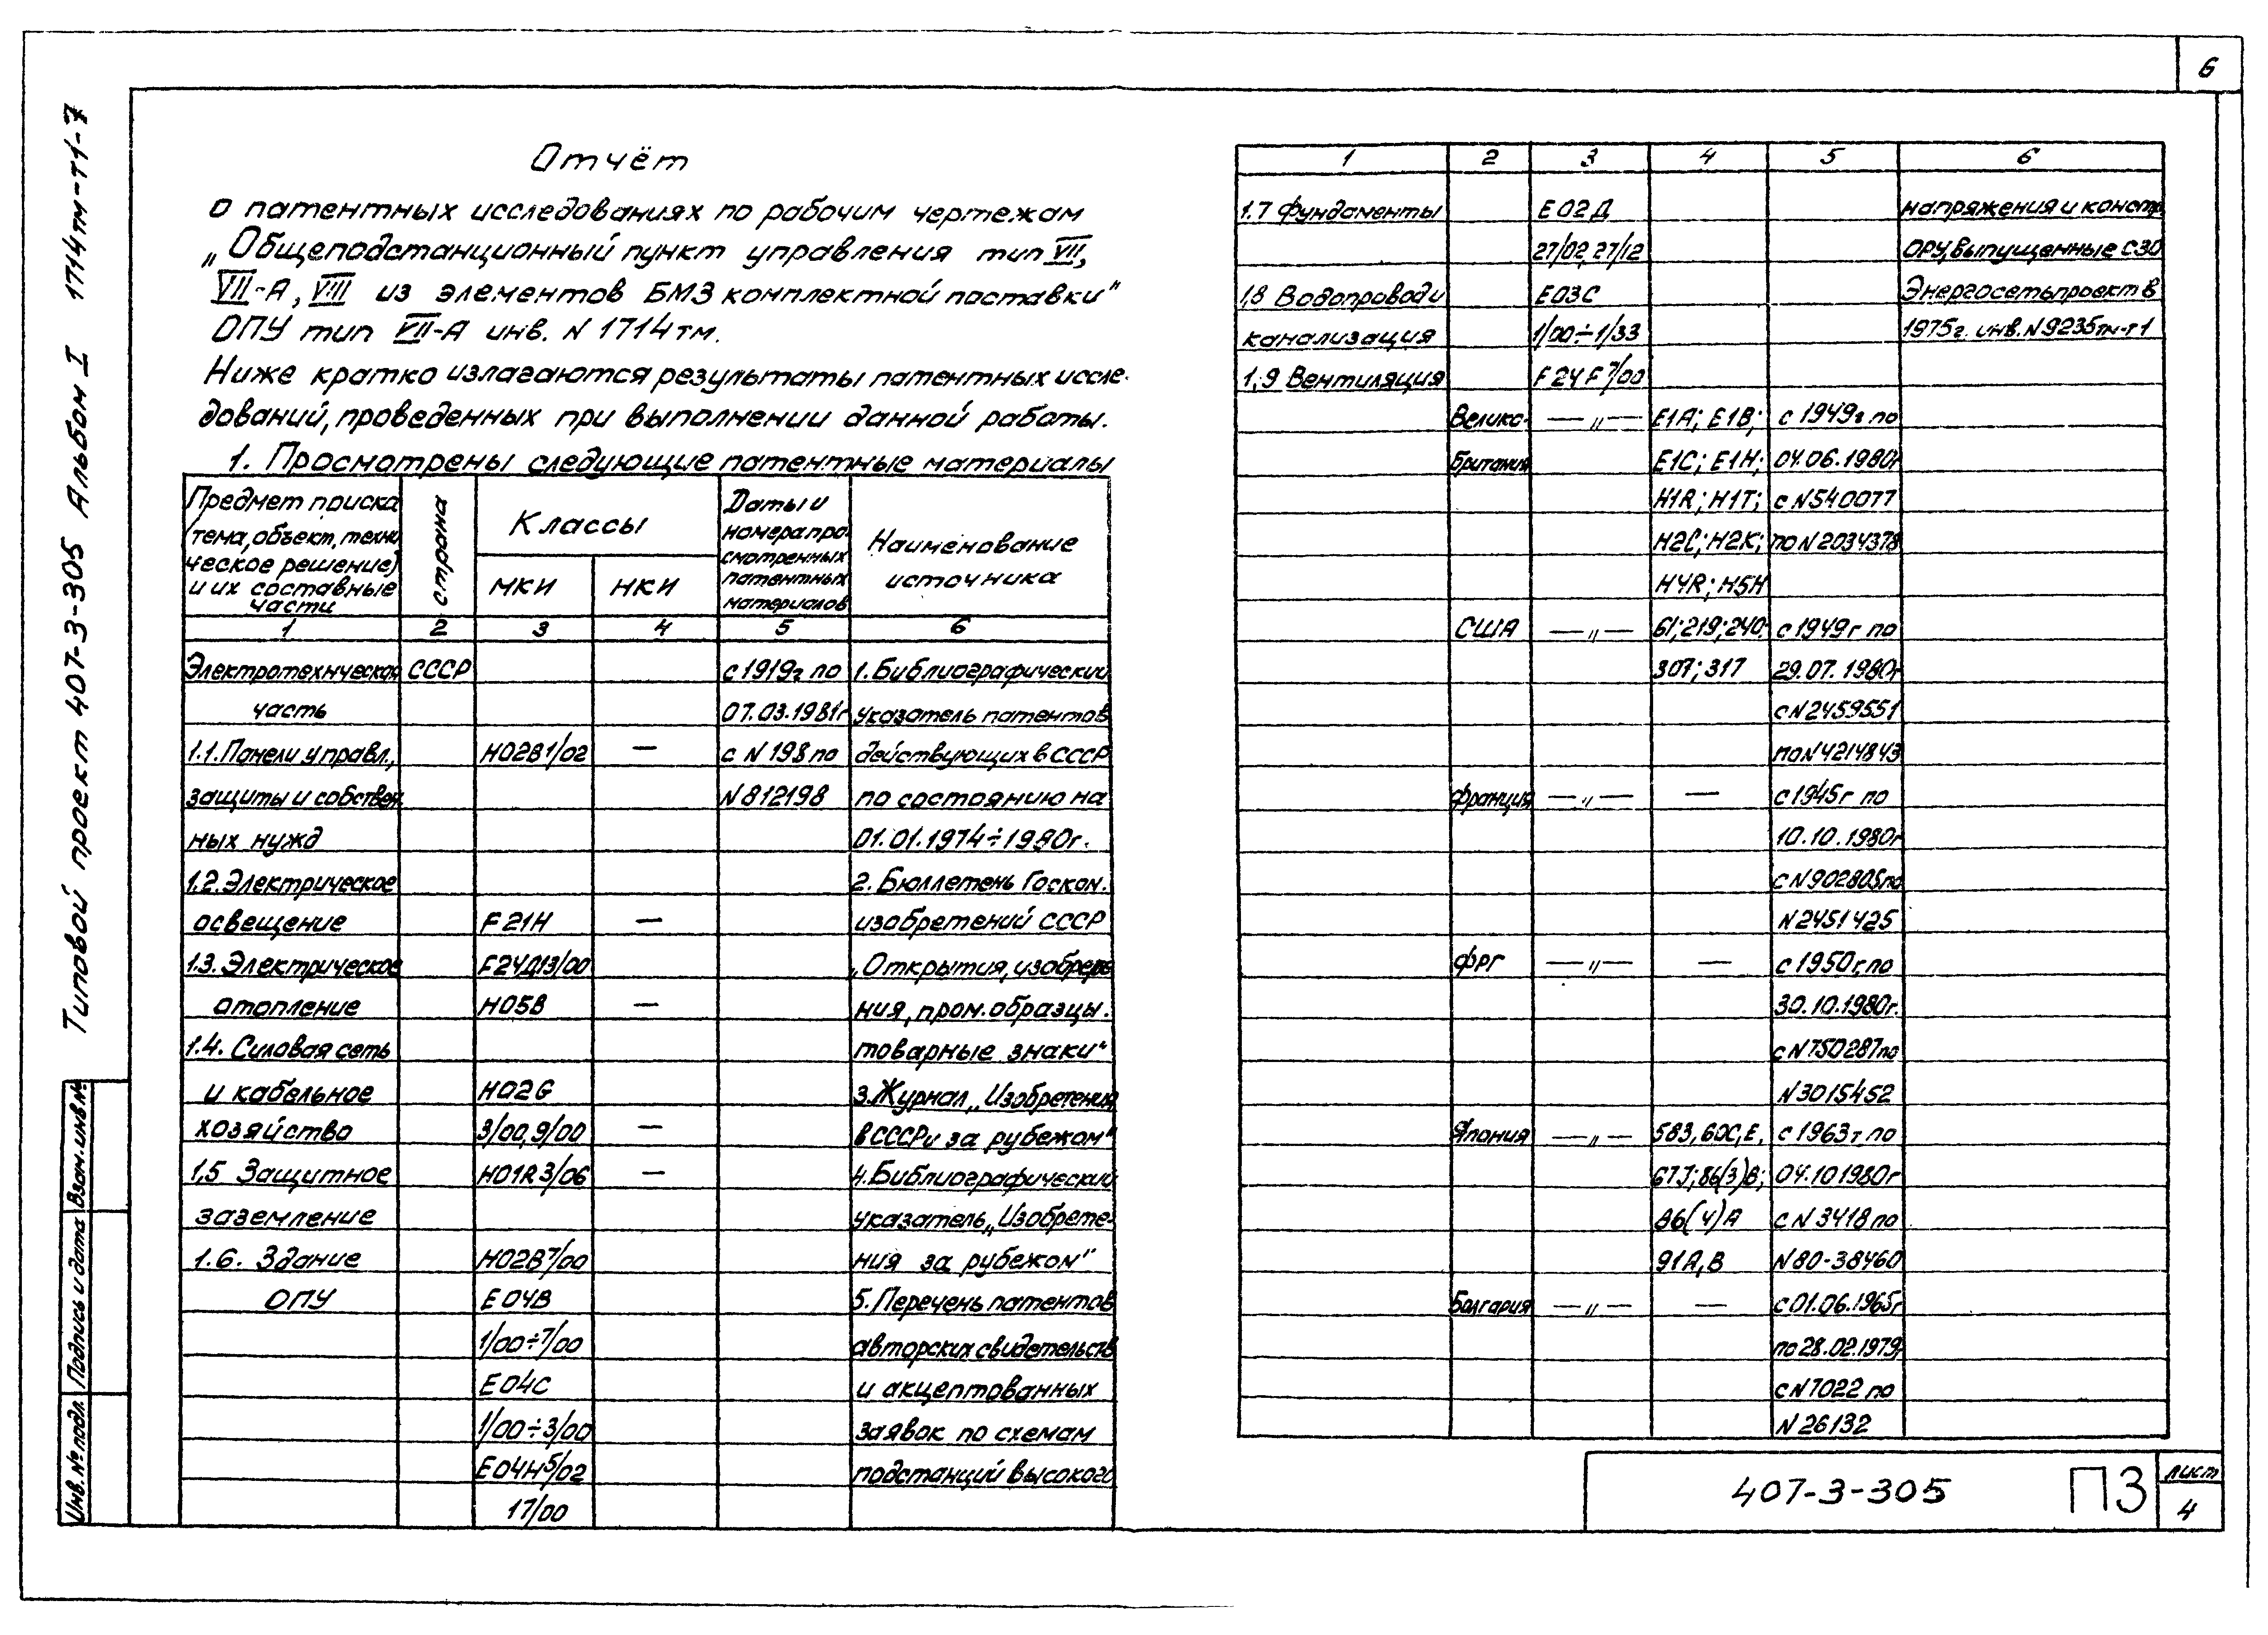 6
Типовой проект 407-3-305 Альбом I 1714тм-т1-7
Отчёт
о патентных исследованиях по рабочим чертежам
„Общеподстанционный пункт управления тип VII,
VII-А, VIII из элементов БМЗ комплектной поставки"
ОПУ тип VII-А инв. N 1714тм.
Ниже кратко излагаются результаты патентных иссле-
дований, проведенных при выполнении данной работы.
1. Просмотрены следующие патентные материалы
Предмет поиска
тема, объект, техни
ческое решение)
и их составные
части
страна
Классы
МКИ
НКИ
Даты и
номера про-
смотренных
патентных
материалов
Наименование
источника
1 2 3 4 5 6
Электротехническая СССР с 1919г по 1. Библиографический
часть 07.03.1981г указатель патентов
1.1. Панели управл., H02B1/02 — с N 198 по действующих в СССР
защиты и собствен N812198 по состоянию на
ных нужд 01.01.1974÷1980г.
1.2. Электрическое 2. Бюллетень Госком.
освещение F21H — изобретений СССР
1.3. Электрическое F24Д13/00 „Открытия, изобрете
отопление H05B — ния, пром. образцы.
1.4. Силовая сеть товарные знаки"
и кабельное H02G 3. Журнал „Изобретения
хозяйство 3/00, 9/00 — в СССР и за рубежом"
1,5 Защитное H01R 3/06 — 4. Библиографический
заземление указатель „Изобрете-
1.6. Здание H02B7/00 ния за рубежом"
ОПУ E04B 5. Перечень патентов
1/00÷7/00 авторских свидетельств
E04C и акцептованных
1/00÷3/00 заявок по схемам
E04H5/02 подстанций высокого
17/00
1 2 3 4 5 6
1.7 Фундаменты E02Д напряжения и констр.
27/02, 27/12 ОРУ, выпущенные СЗО
1,8 Водопровод и E03C Энергосетьпроект в
канализация 1/00÷1/33 1975г. инв. N9235тм-т1
1,9 Вентиляция F24F7/00
Велико- —„— E1A; E1B; с 1949г по
британия E1C; E1H; 04.06.1980г
H1R; H1T; с N540077
H2C; H2K; по N2034378
H4R; H5H
США —„— 61; 219; 240; с 1949г по
307; 317 29.07.1980г
с N2459551
по N4214843
Франция —„— — с 1945г по
10.10.1980г
с N902805 по
N2451425
ФРГ —„— — с 1950г. по
30.10.1980г.
с N750287 по
N3015452
Япония —„— 583, 60C, E, с 1963г по
67J; 86(3)B; 04.10 1980г
86(4)A с N 3418 по
91A, B N80-38460
Болгария —„— — с 01.06.1965г
по 28.02.1979г
с N7022 по
N26132
Инв. № подл. Подпись и дата Взам. инв №
407-3-305 ПЗ
лист
4